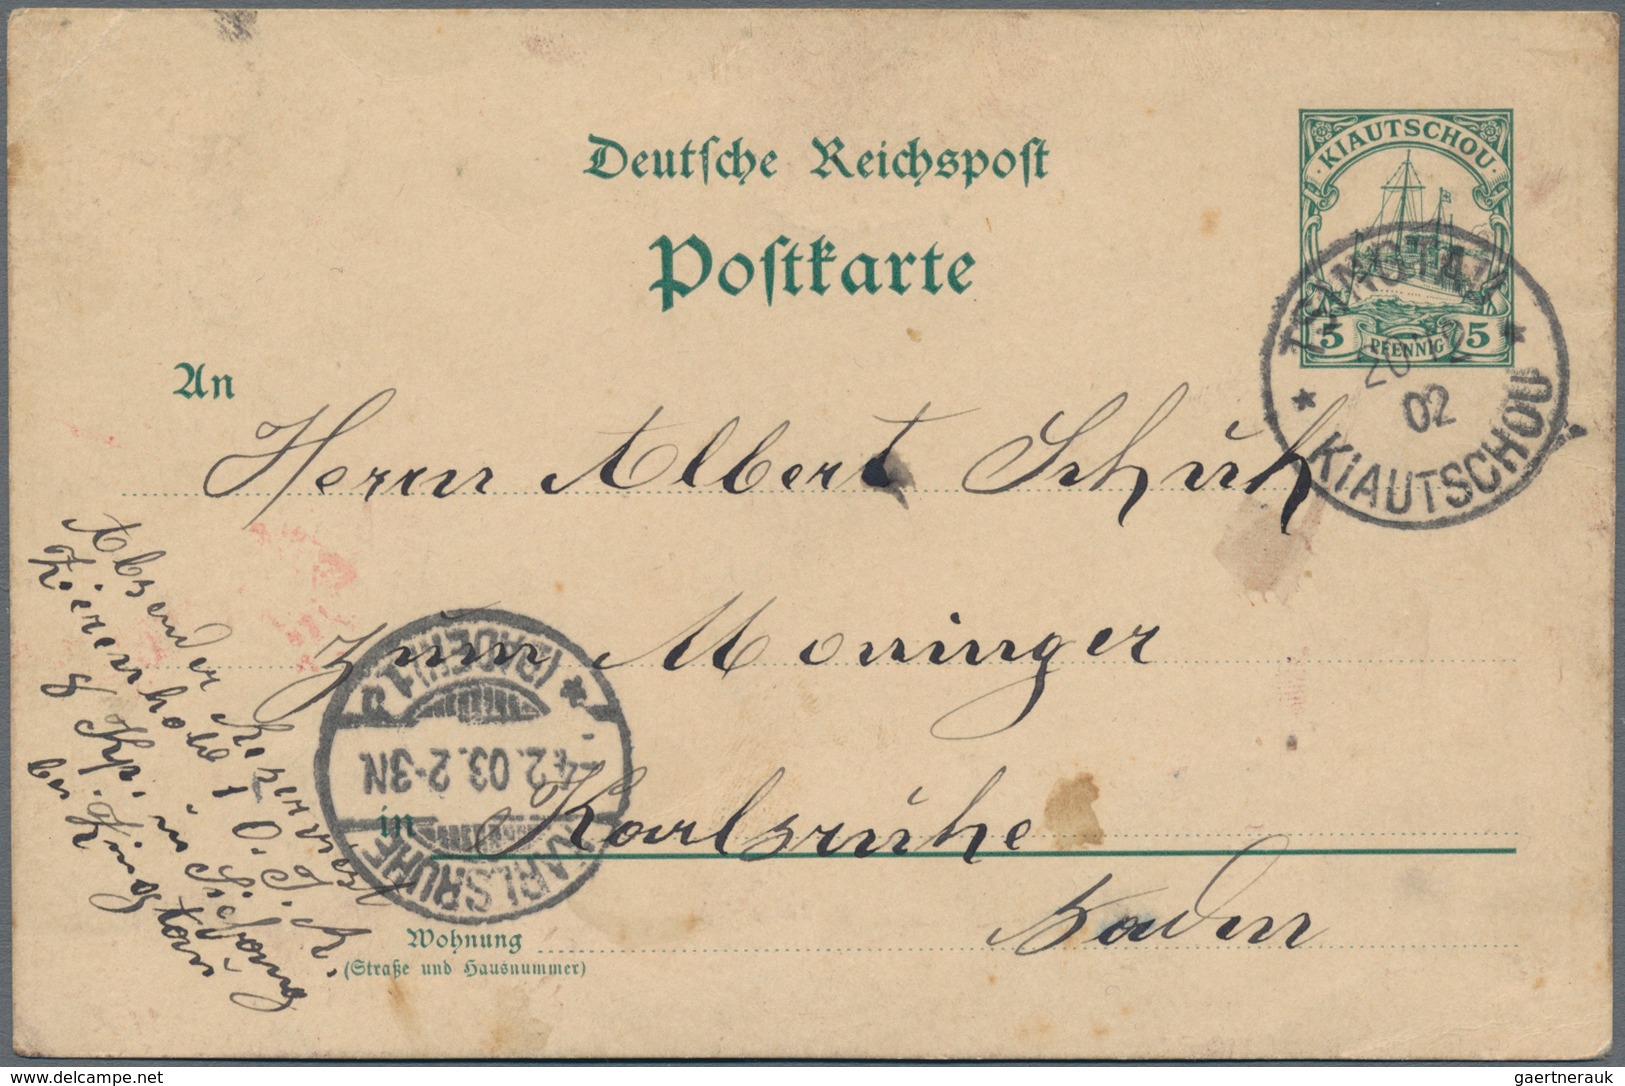 Deutsche Reichspost
Postkarte
KIAUTSCHOU
5 PFENNIG 5
TSINGTAU
12
02
KIAUTSCHOU
An
Herrn Albert Schuh
Zum Moninger
in Karlsruhe
Baden
Wohnung
(Straße und Hausnummer)
KARLSRUHE
-4 2.03.2-3N
(BADEN)
Absender
1 O.
Kp. in
bei
delcampe.net
gaertnerauk